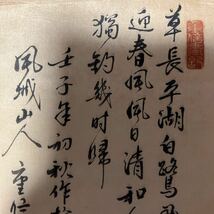 草長平湖白鷺飛
迎春風風日清和
獨釣幾时歸
壬子年初秋作於
風城山人